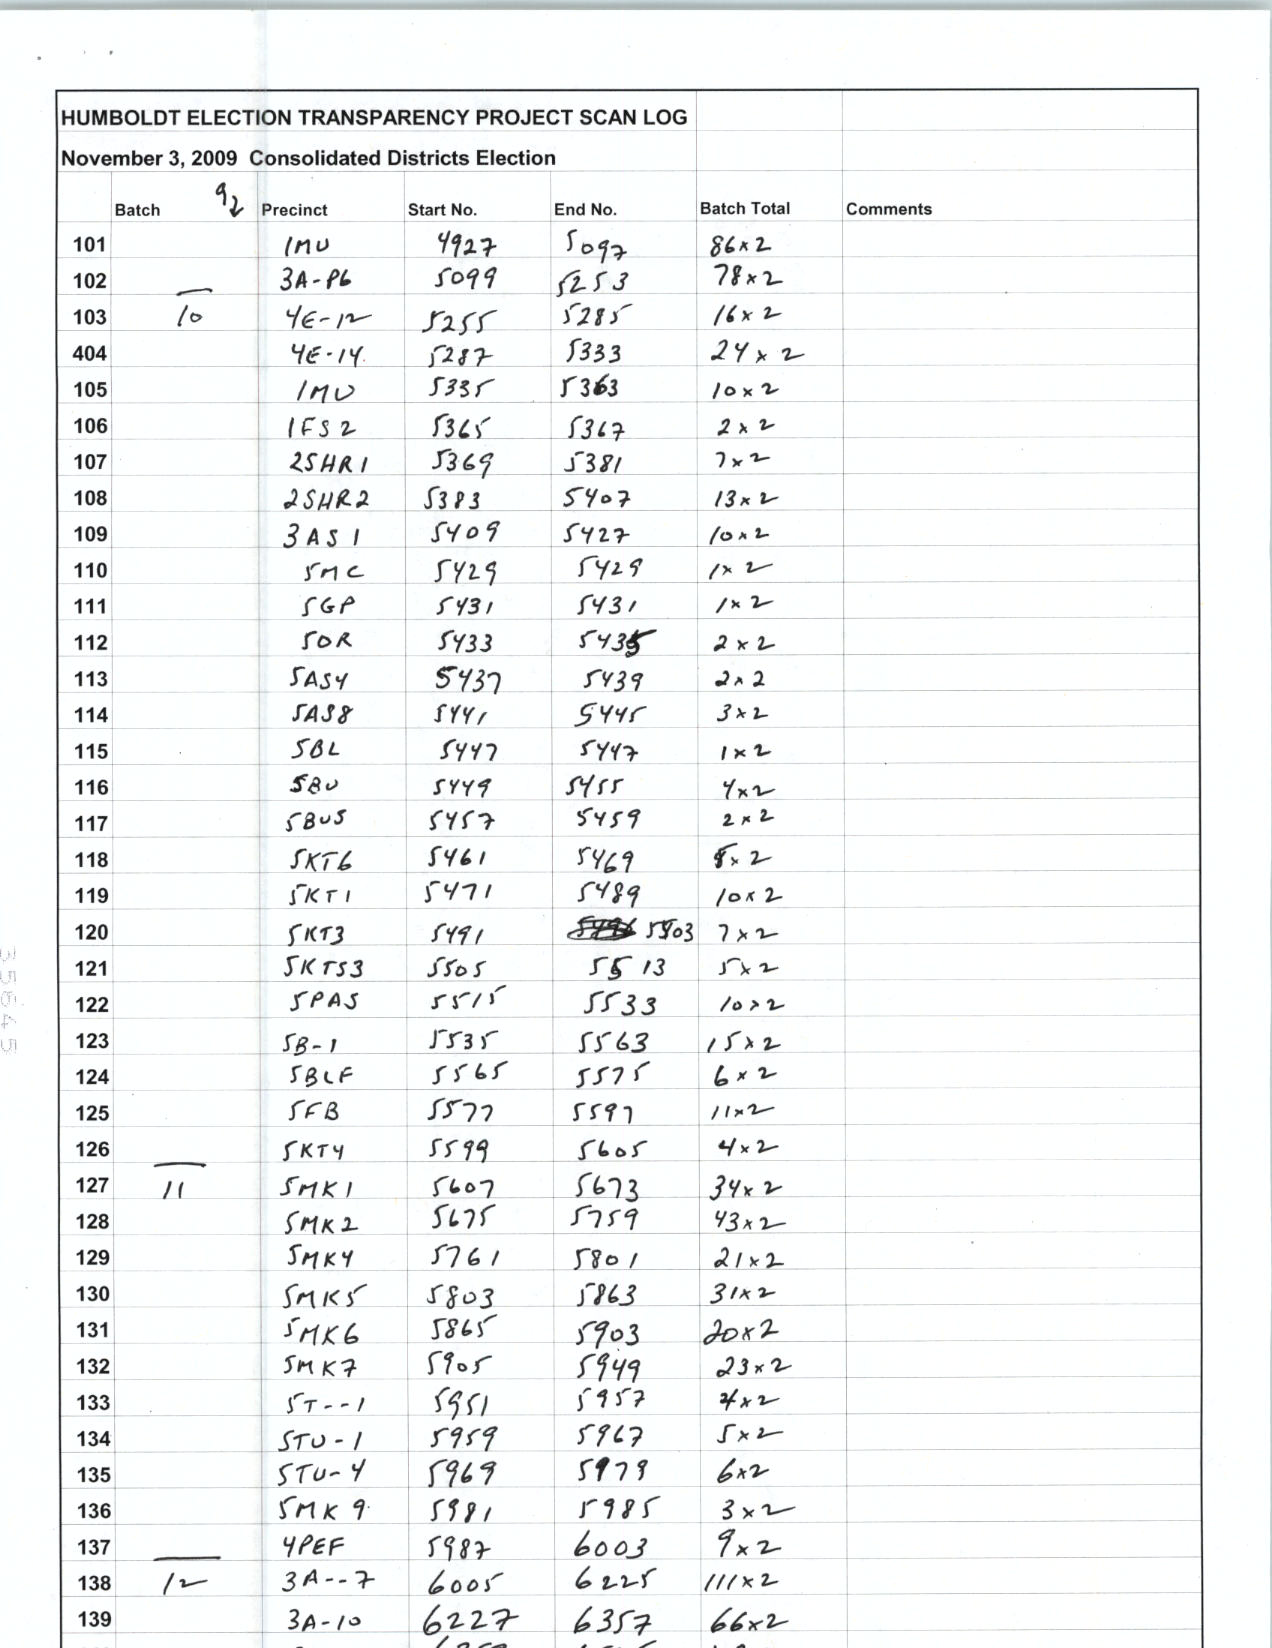 HUMBOLDT ELECTION TRANSPARENCY PROJECT SCAN LOG
November 3, 2009 Consolidated Districts Election
Batch 9 Precinct Start No. End No. Batch Total Comments
101 1MU 4927 5097 86x2
102 3A-P6 5099 5253 78x2
103 10 4E-12 5255 5285 16x2
404 4E-14 5287 5333 24x2
105 1MU 5335 5363 10x2
106 1FS2 5365 5367 2x2
107 2SHR1 5369 5381 7x2
108 2SHR2 5383 5407 13x2
109 3AS1 5409 5427 10x2
110 5MC 5429 5429 1x2
111 5GP 5431 5431 1x2
112 5OR 5433 5435 2x2
113 5AS4 5437 5439 2x2
114 5AS8 5441 5445 3x2
115 5BL 5447 5447 1x2
116 5BU 5449 5455 4x2
117 5BUS 5457 5459 2x2
118 5KT6 5461 5469 5x2
119 5KT1 5471 5489 10x2
120 5KT3 5491 5503 7x2
121 5KTS3 5505 5513 5x2
122 5PAS 5515 5533 10x2
123 5B-1 5535 5563 15x2
124 5BLF 5565 5575 6x2
125 5FB 5577 5597 11x2
126 5KT4 5599 5605 4x2
127 11 5MK1 5607 5673 34x2
128 5MK2 5675 5759 43x2
129 5MK4 5761 5801 21x2
130 5MK5 5803 5863 31x2
131 5MK6 5865 5903 20x2
132 5MK7 5905 5949 23x2
133 5T--1 5951 5957 4x2
134 5TU-1 5959 5967 5x2
135 5TU-4 5969 5979 6x2
136 5MK9 5981 5985 3x2
137 4PEF 5987 6003 9x2
138 12 3A--7 6005 6225 111x2
139 3A-10 6227 6357 66x2